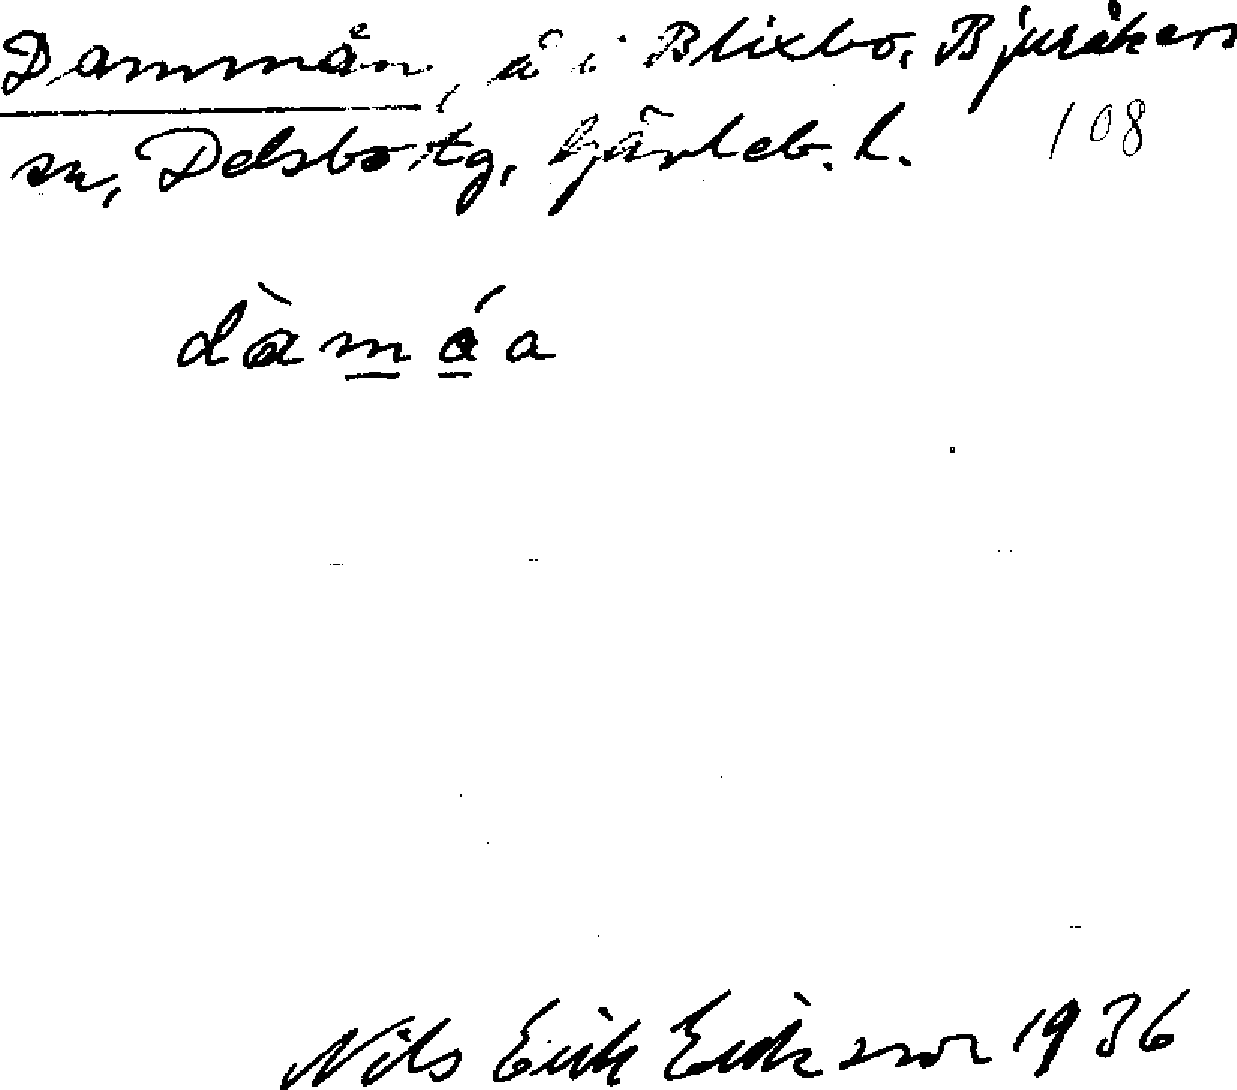 Dammån, å i Blixbo, Bjuråkers
sn, Delsbo tg, Gävleb. l. 108
dàmáa
Nils Erik Eriksson 1936